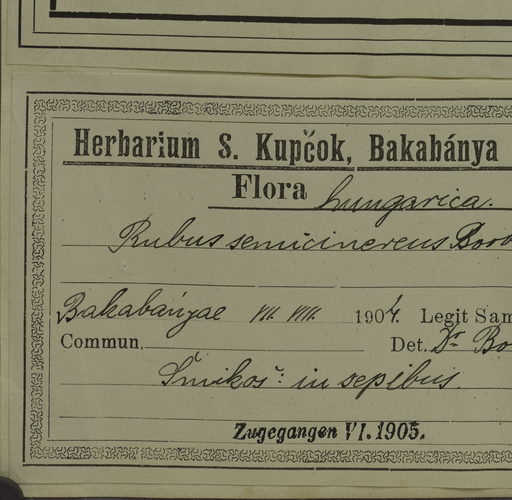 Herbarium S. Kupčok, Bakabánya
Flora hungarica.
Rubus semicinereus Borb
Bakabányae VII. VIII. 1904. Legit Sam
Commun. Det. Dr Bo
Šmikoš: in sepibus.
Zugegangen VI. 1905.